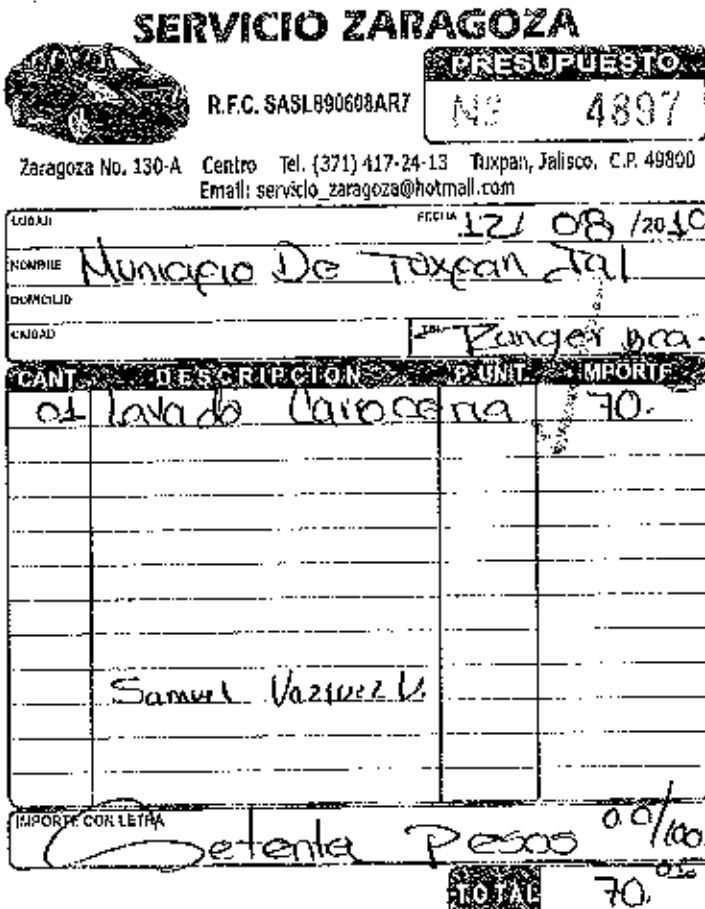 SERVICIO ZARAGOZA
PRESUPUESTO
R.F.C. SASL890608AR7
Nº 4897
Zaragoza No. 130-A Centro Tel. (371) 417-24-13 Tuxpan, Jalisco. C.P. 49800
Email: servicio_zaragoza@hotmail.com
LUGAR FECHA 12/ 08 /2010
NOMBRE Municipio De Tuxpan Jal
DOMICILIO
CIUDAD TEL. Ranger Bca.
CANT. DESCRIPCION P. UNIT. IMPORTE
01 lavado Carroceria 70.
Samuel Vazquez V.
IMPORTE CON LETRA Setenta Pesos 00/100
TOTAL 70.00